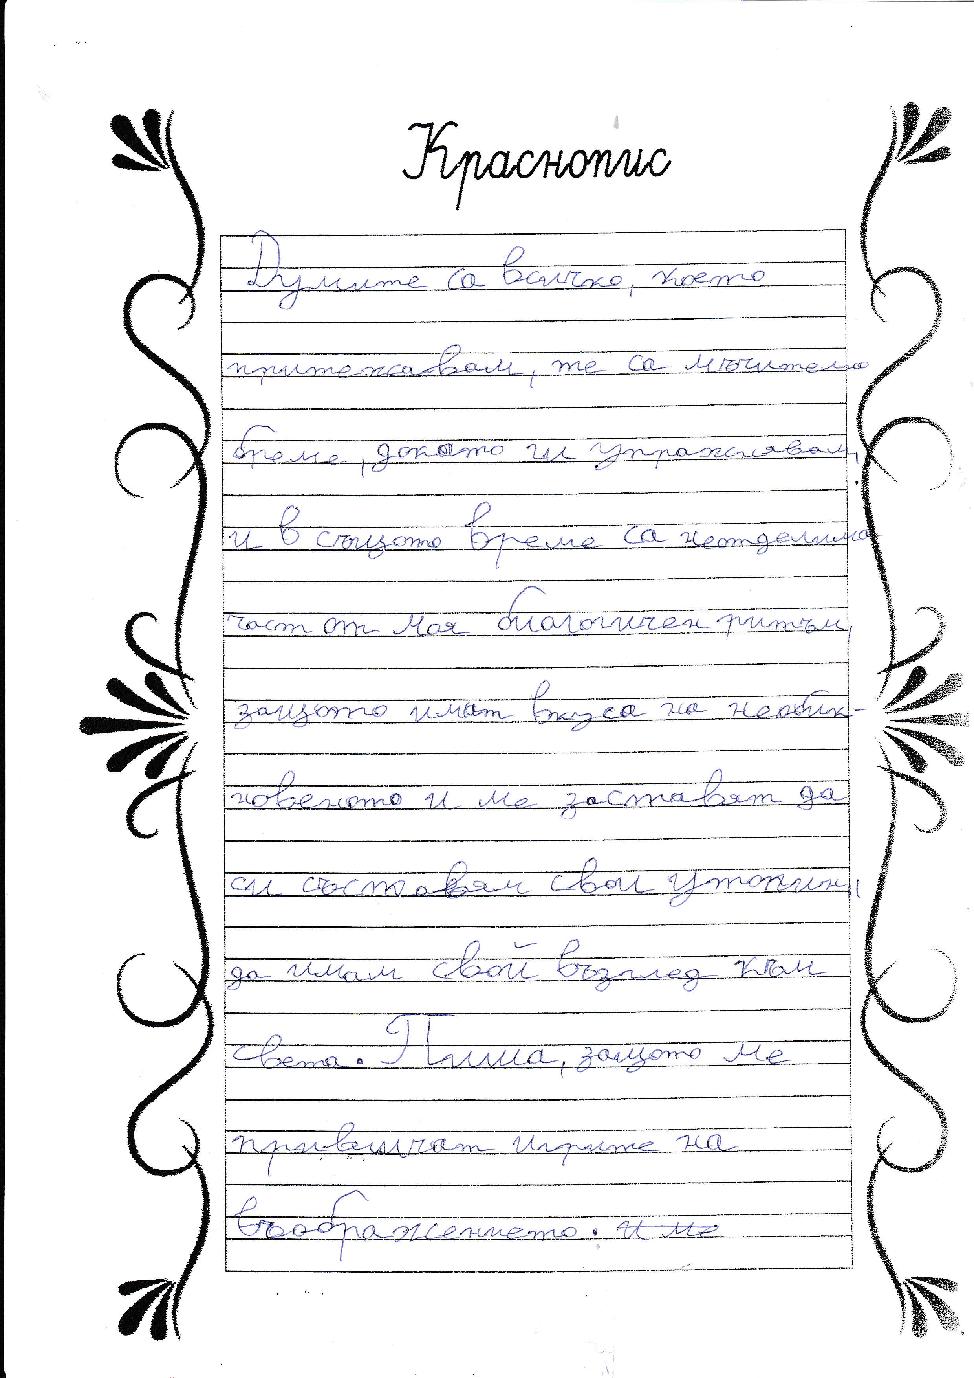 Краснопис
Думите са всичко, което
притежавам, те са мъчително
бреме, докато ги упражнявам,
и в същото време са неотделима
част от моя биологичен ритъм,
защото имат вкуса на необик-
новеното и ме заставят да
си съставям свои утопии,
да имам свой възглед към
света. Пиша, защото ме
привличат игрите на
въображението. и ме